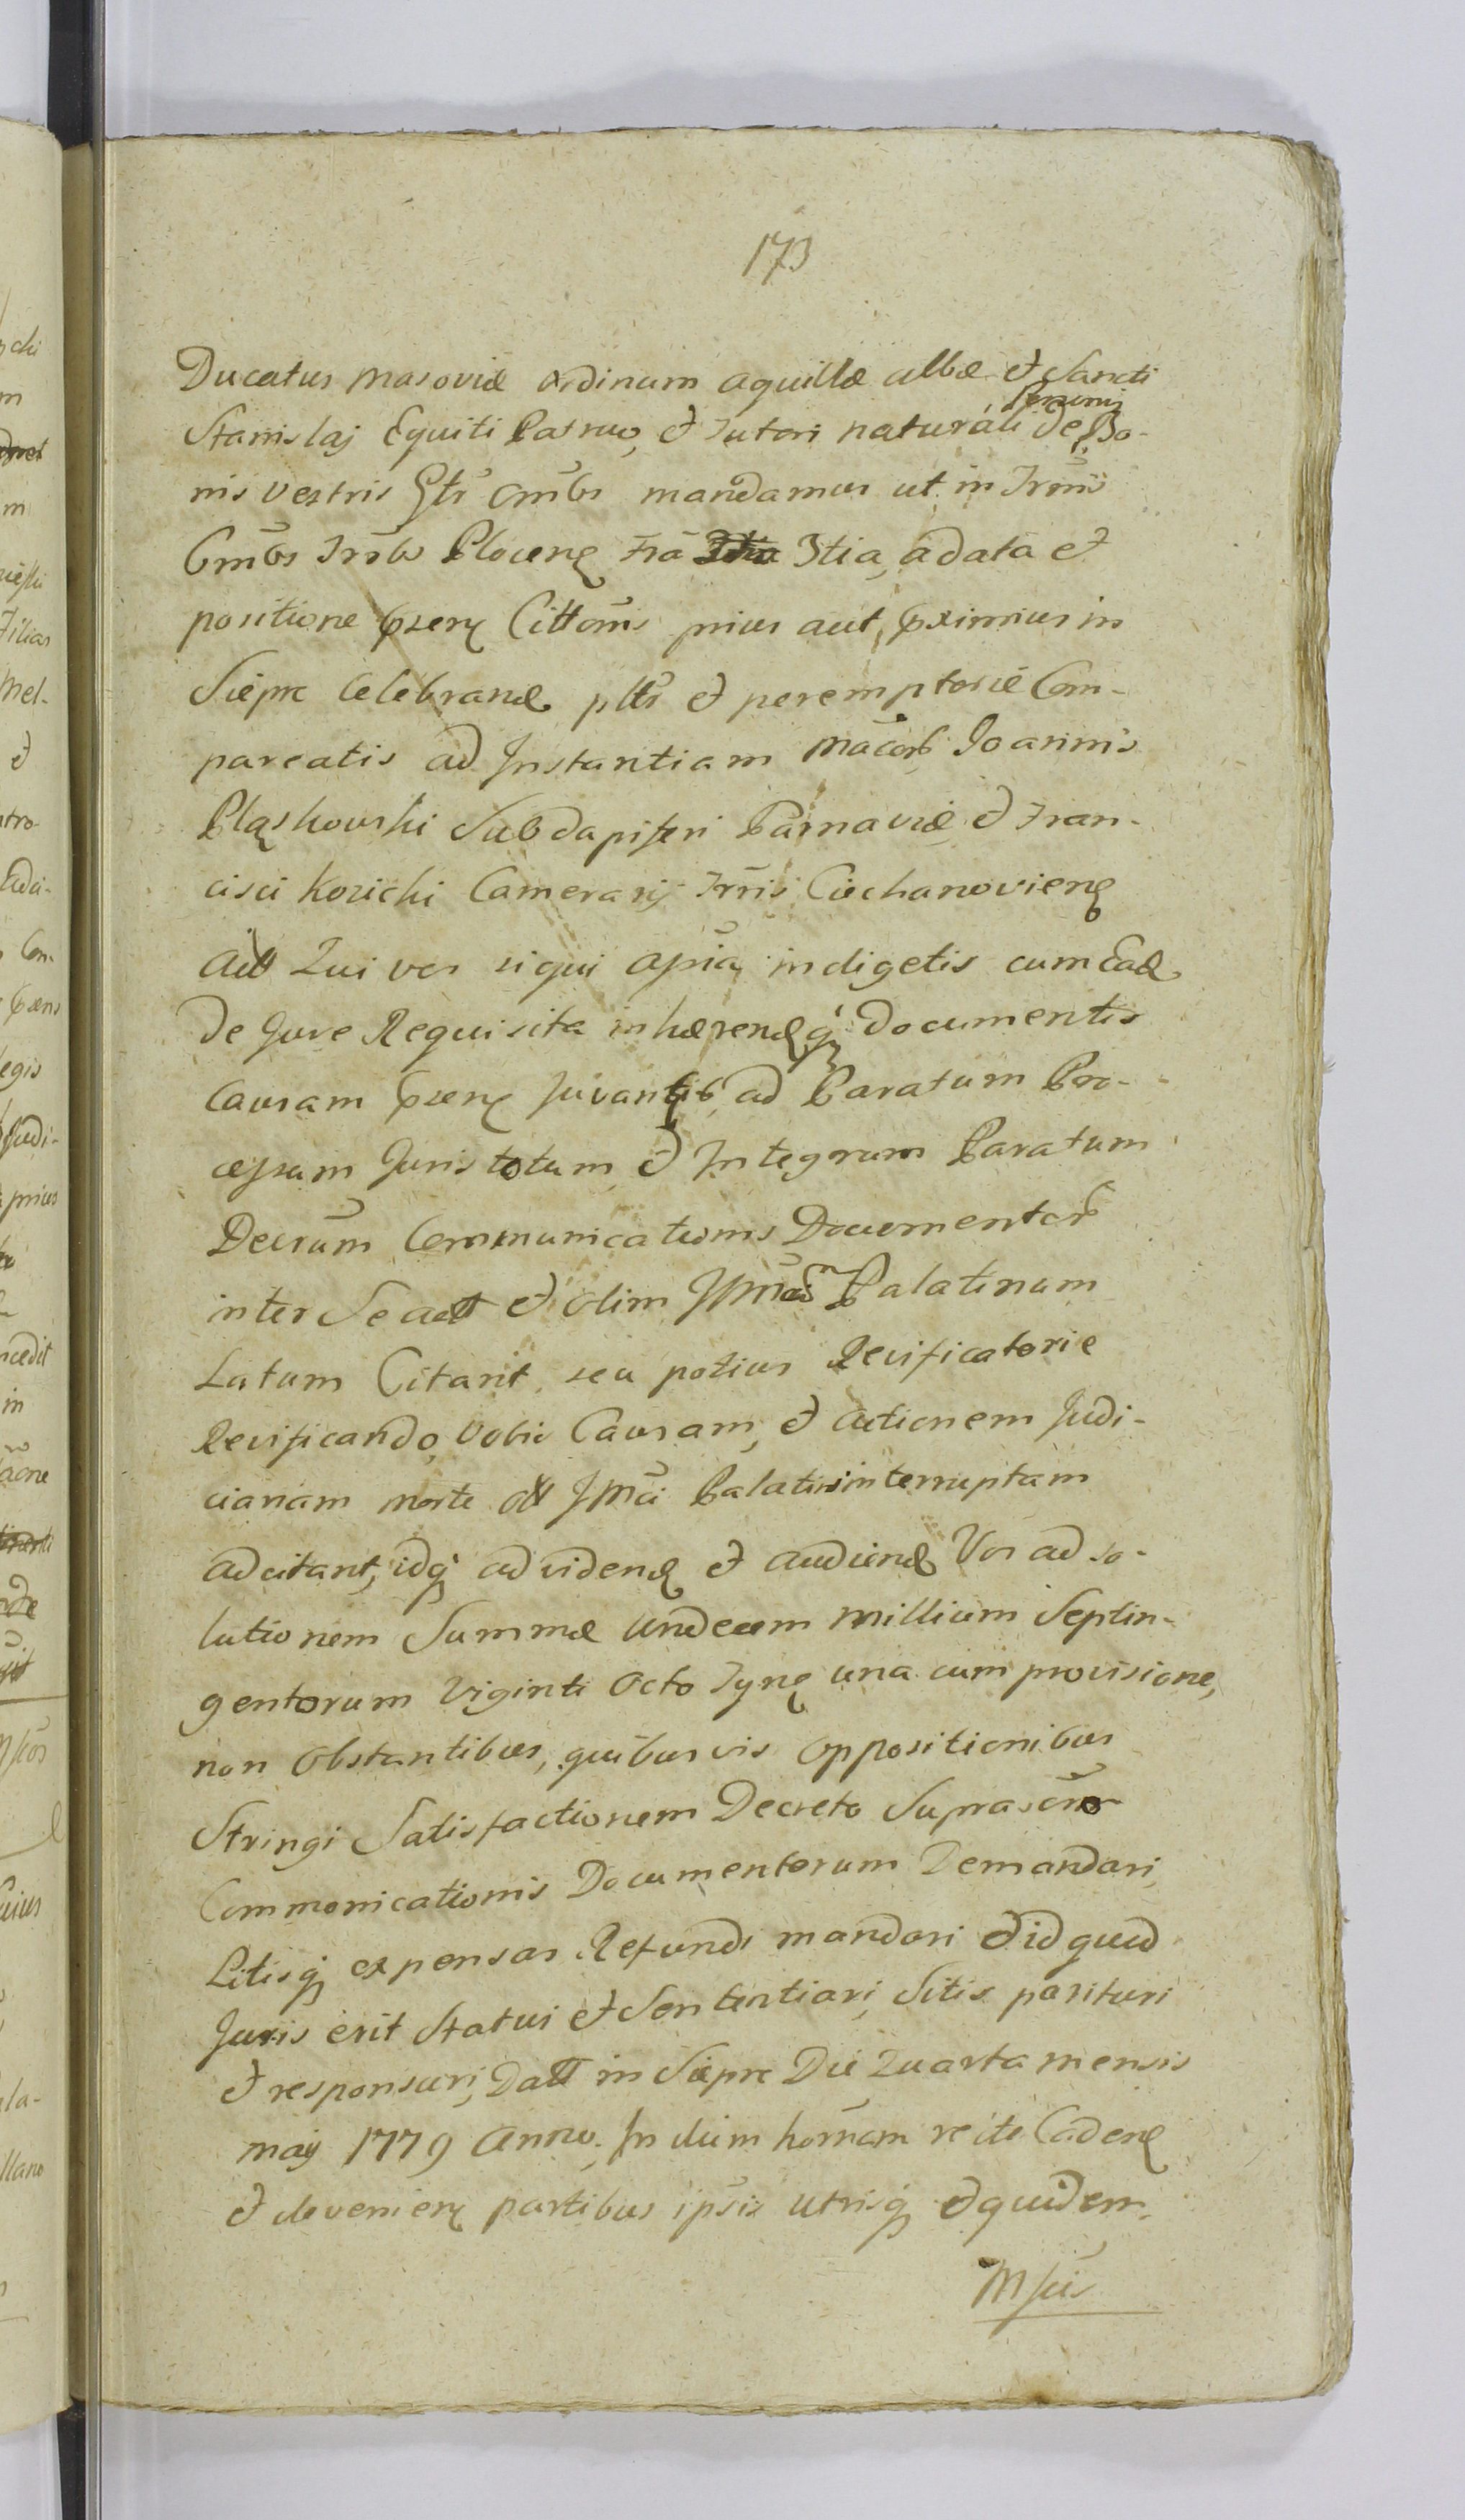 173
Ducatus Masoviæ ordinum aquillæ albæ et Sancti
Stanislaj Equiti Patruo, et Tutori naturali de Personis Bo-
nis vestris Gtr ombs mandamus ut in Trmis
Gmbs Trrbs Plocenę Fra 3tia 3tia, a data et
positione Pzenę Cittonis prius aut, Pximius in
Sieprc Celebrandę pltr et peremptorie Com-
pareatis ad Instantiam Macorb Joannis
Pląskowski Subdapiferi Parnaviæ et Fran-
cisci Kozicki Camerarij Trris Ciechanovienę
Act Qui vos siqui apia indigetis cum Eadę
de Jure Requisita inhærendę q documentis
Causam Pzenę Juvantib ad Paratum Pro-
cessum Juris totum et Integrum Paratum
Decrum Communicationis Documentorb
inter Se act et olim JMci Palatinum
Latum Citant, seu potius Reificatorie
Reificando, Vobis Causam, et actionem Judi-
ciariam morte olt JMci Palatini interruptam
adcitant, idq ad videndę et audiendę Vos ad so-
lutionem Summæ Undecem Millium Septin-
gentorum Viginti Octo Tynę una cum provisione,
non Obstantibus, quibusvis oppositionibus
Stringi Satisfactionem Decreto Suprascrto
Commonicationis Documentorum Demandari,
Litisq expensas Refundi mandari et id quid
Juris erit Statui et Sententiari, Sitis parituri
et responsuri, Datt in Sieprc Die Quarta mensis
maij 1779 Anno. In diem hornam recte Cadenę
et devenienę partibus ipsis utrisq et quidem.
Mscis